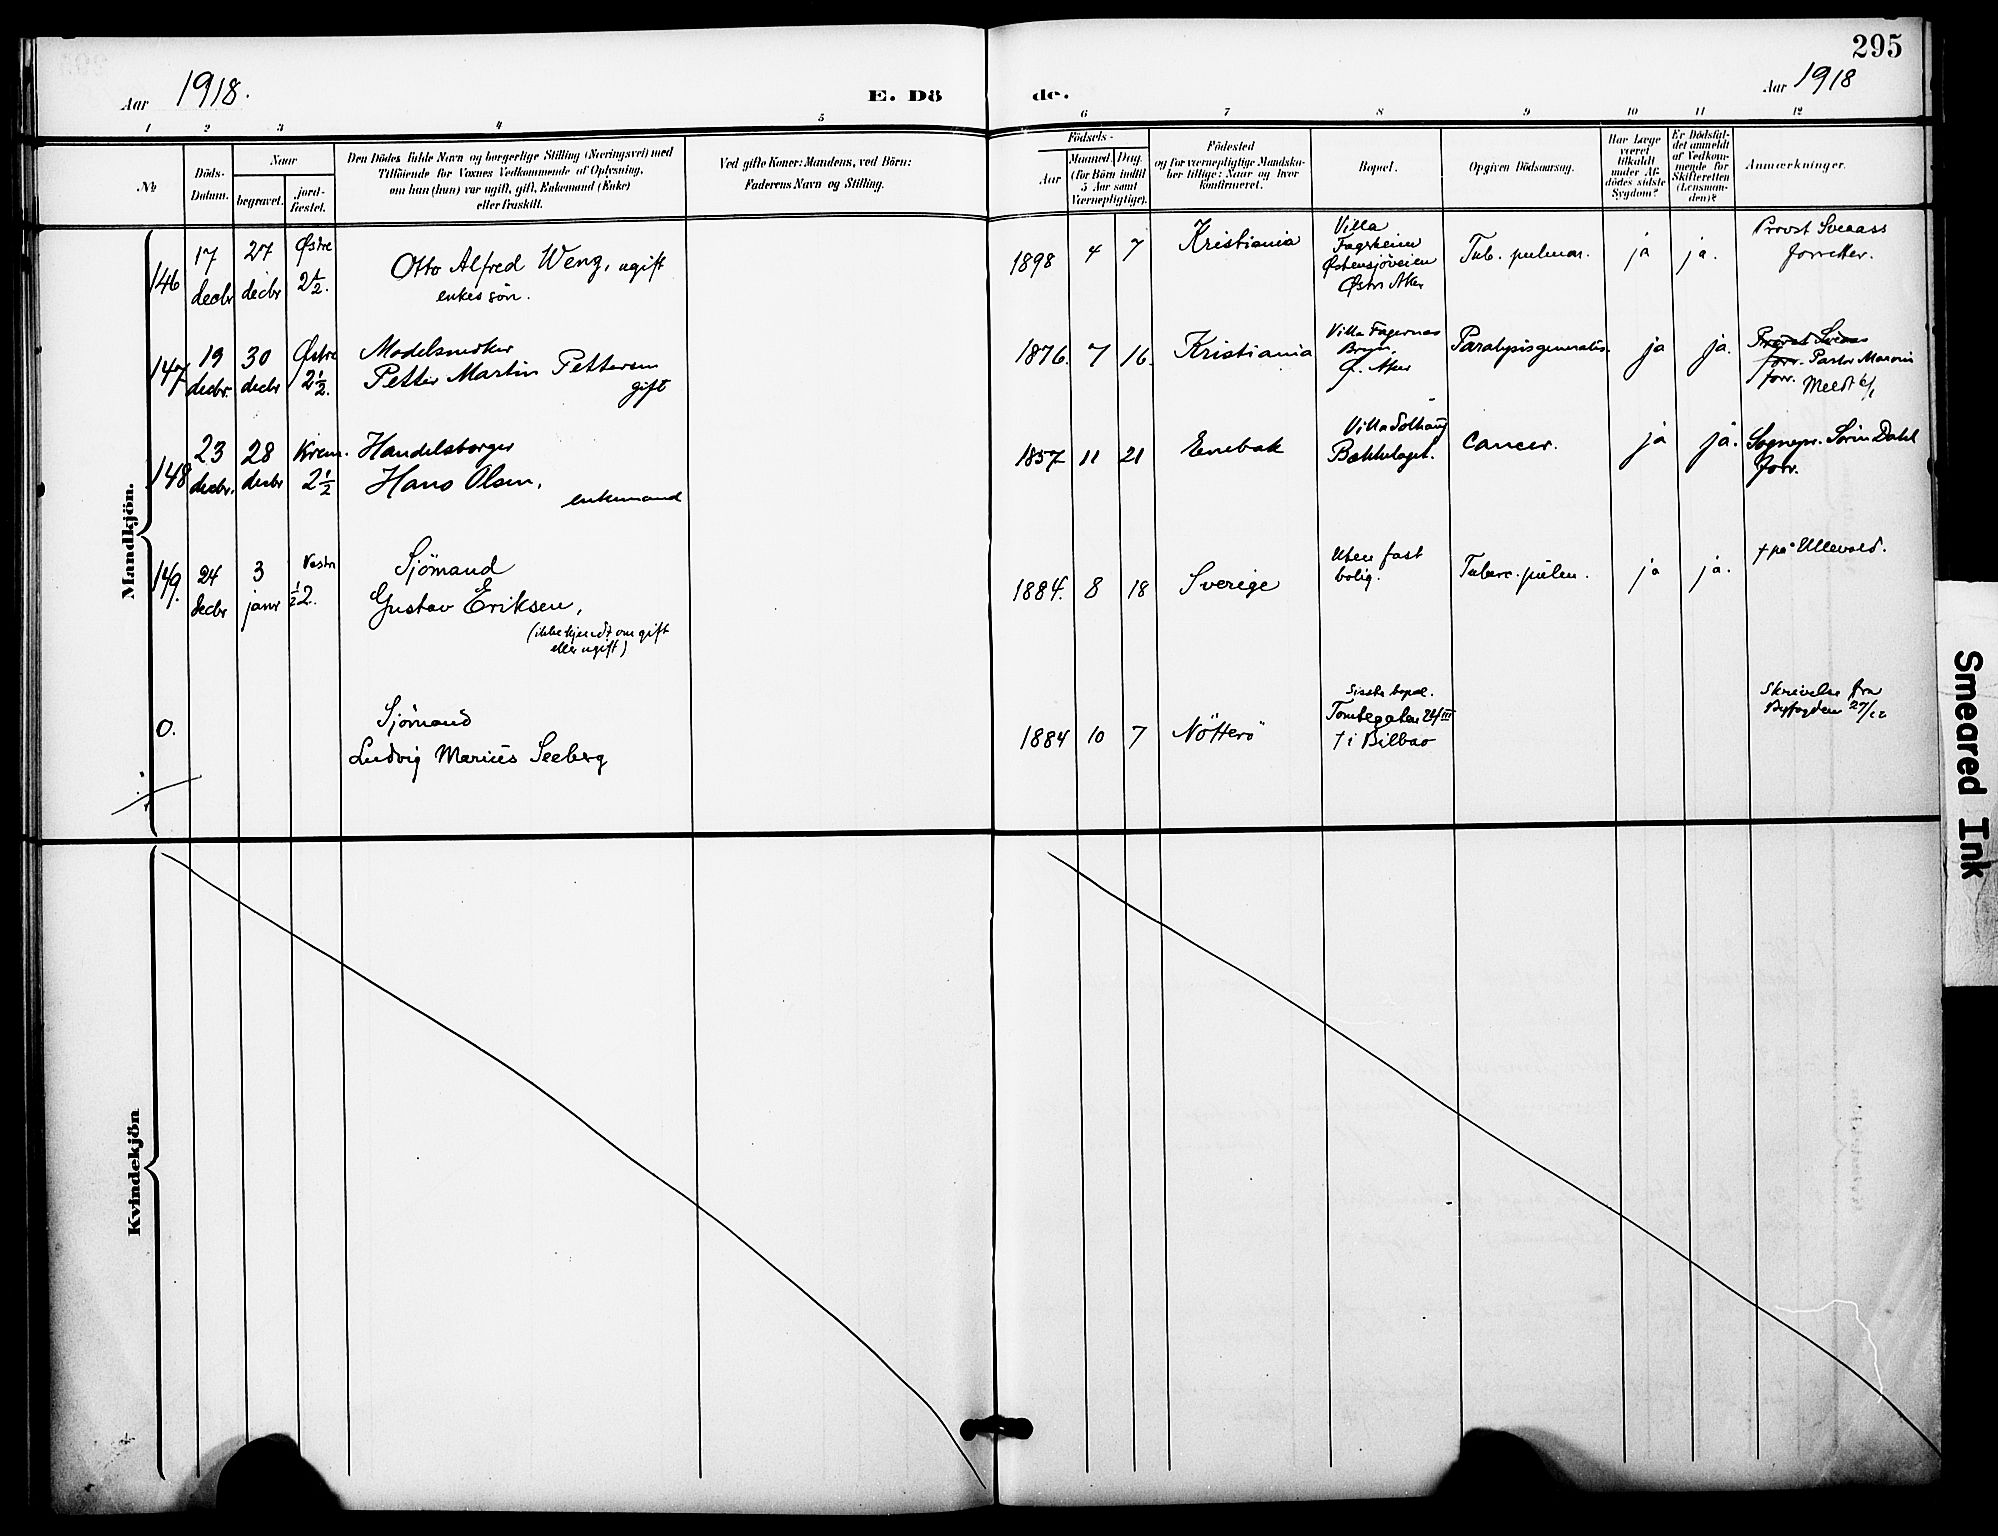 295
Aar 1918.
E. Dö
de.
Aar 1918
1 2 3 4 5 6 7 8 9 10 11 12
No
Döds-
Datum.
Naar
begravet.
jord-
fæstet.
Den Dödes fulde Navn og borgerlige Stilling (Næringsvei) med
Tilföiende for Voxnes Vedkommende af Oplysning,
om han (hun) var ugift, gift, Enkemand (Enke)
eller fraskilt.
Ved gifte Koner: Mandens, ved Börn:
Faderens Navn og Stilling.
Födsels-
Aar
Maaned. Dag.
(for Börn indtil
5 Aar samt
Værnepligtige).
Födested
og for værnepligtige Mandska-
ber tillige: Naar og hvor
konfirmeret.
Bopæl.
Opgiven Dödsaarsag.
Har Læge
været
tilkaldt
under Af-
dödes sidste
Sygdom?
Er Dödsfal-
det anmeldt
af Vedkom-
mende for
Skifteretten
(Lensman-
den)?
Anmærkninger.
Mandkjön.
146
17
decbr
27
decbr
Østre
2 1/2.
Otto Alfred Weng, ugift
enkes sön.
1898 4 7
Kristiania
Villa
Fagerheim
Østensjöveien
Østre Aker
Tub. pulmon.
ja
ja.
Provst Sveaass
forretter.
147
19
decbr.
30
decbr
Østre
2 1/2.
Modelsnedker
Petter Martin Pettersen
gift
1876. 7 16.
Kristiania
Villa Fagernes
Bryn.
Ø. Aker
Paralysis generalis.
ja
ja.
Provst Sveaas
forr. Pastor
forr. Meldt 6/1
148
23
decbr.
28
decbr
Krem.
2 1/2
Handelsborger
Hans Olsen,
enkemand
1857 11 21
Enebak
Villa Solhaug
Bækkelaget.
Cancer.
ja
ja.
Sognepr. Sörin Dahl
forr.
149.
24
decbr
3
janr
Vestre
1/2 2.
Sjömand
Gustav Eriksen,
(ikke kjendt om gift
eller ugift)
1884. 8 18
Sverige
Uten fast
bolig.
Tuberc. pulm.
ja
ja.
† på Ullevold.
0.
Sjömand
Ludvig Marius Seeberg
1884 10 7
Nötterö
Sidste bopæl.
Tomtegaten 26/III
† i Bilbao
Skrivelse fra
Byfogden 27/12
Kvindekjön
Smeared Ink